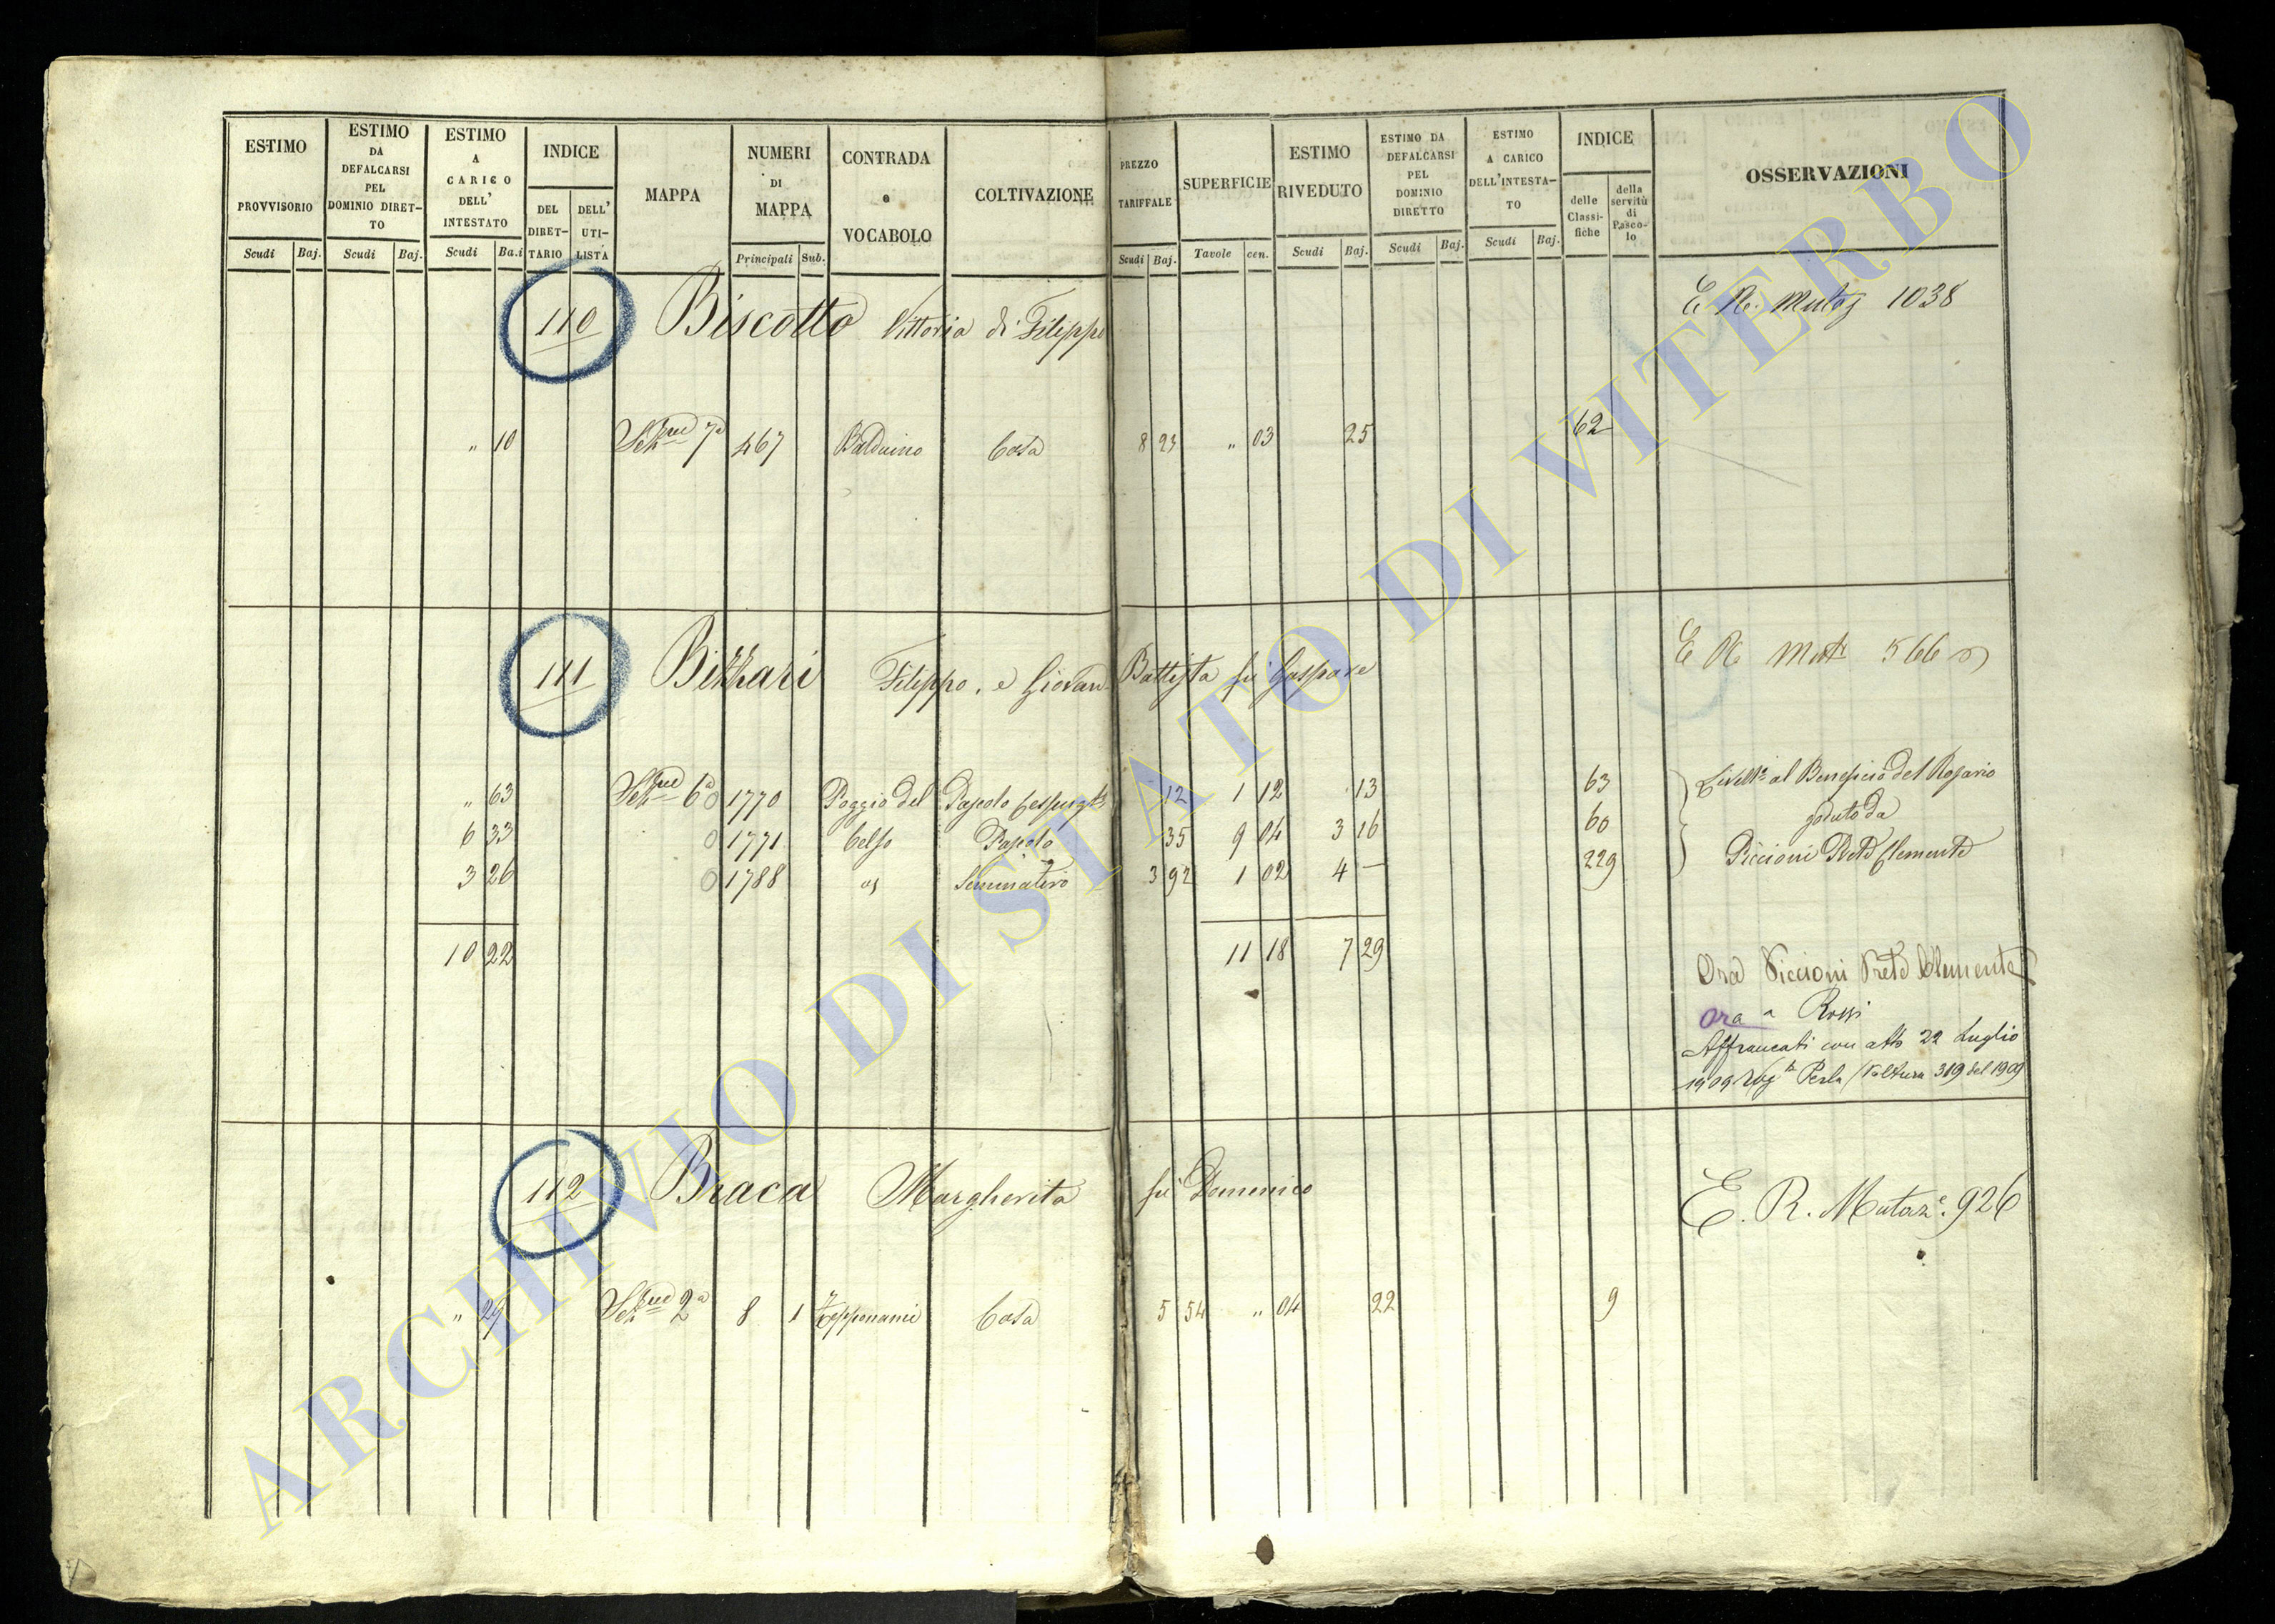 ESTIMO PROVVISORIO ESTIMO DA DEFALCARSI PEL DOMINIO DIRET-TO ESTIMO A CARICO DELL' INTESTATO INDICE DEL DIRET-TARIO DELL' UTI-LISTA MAPPA NUMERI DI MAPPA CONTRADA e VOCABOLO COLTIVAZIONE PREZZO TARIFFALE SUPERFICIE ESTIMO RIVEDUTO ESTIMO DA DEFALCARSI PEL DOMINIO DIRETTO ESTIMO A CARICO DELL'INTESTA-TO INDICE delle Classi-fiche della servitù di Pasco-lo OSSERVAZIONI
Scudi Baj. Scudi Baj. Scudi Ba.i Principali Sub. Scudi Baj. Tavole cen. Scudi Baj. Scudi Baj. Scudi Baj.
110 Biscotto Vittoria di Filippo E R. 1038
" 10 7a 467 Balduino Casa 8 23 " 03 25 62
111 Filippo, e Giovan Battista fu Gaspare E R 566
" 63 6a 1770 Poggio del Pascolo 12 1 12 13 63 al Beneficio del Rosario
6 33 1771 Celso Pascolo 35 9 04 3 16 60 goduto da
3 26 1788 Seminativo 3 92 1 02 4 — 229 Piccioni Clemente
10 22 11 18 7 29
Ora Piccioni Prete Clemente
Ora a Rossi
Affrancati con atto 22 Luglio
1909 Perla (Voltura 319 del 1909
112 Braca Margherita fu Domenico E. R. Mutaz.e 926
" 29 2a 8 1 Casa 5 54 " 04 22 9
ARCHIVIO DI STATO DI VITERBO